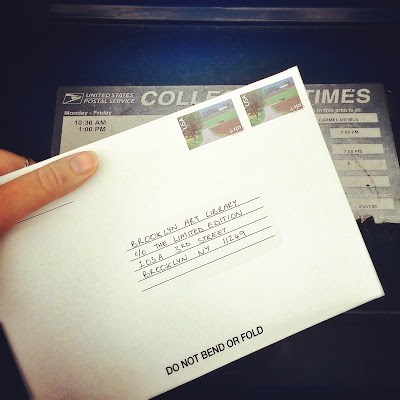 UNITED STATES
POSTAL SERVICE
COLLE TIMES
Monday - Friday
10:30 AM
1:00 PM
in this area is at:
CARMEL
7:00 PM
USA
USA
BROOKLYN ART LIBRARY
c/o THE LIMITED EDITION
103A 3RD STREET
BROOKLYN NY 11249
DO NOT BEND OR FOLD